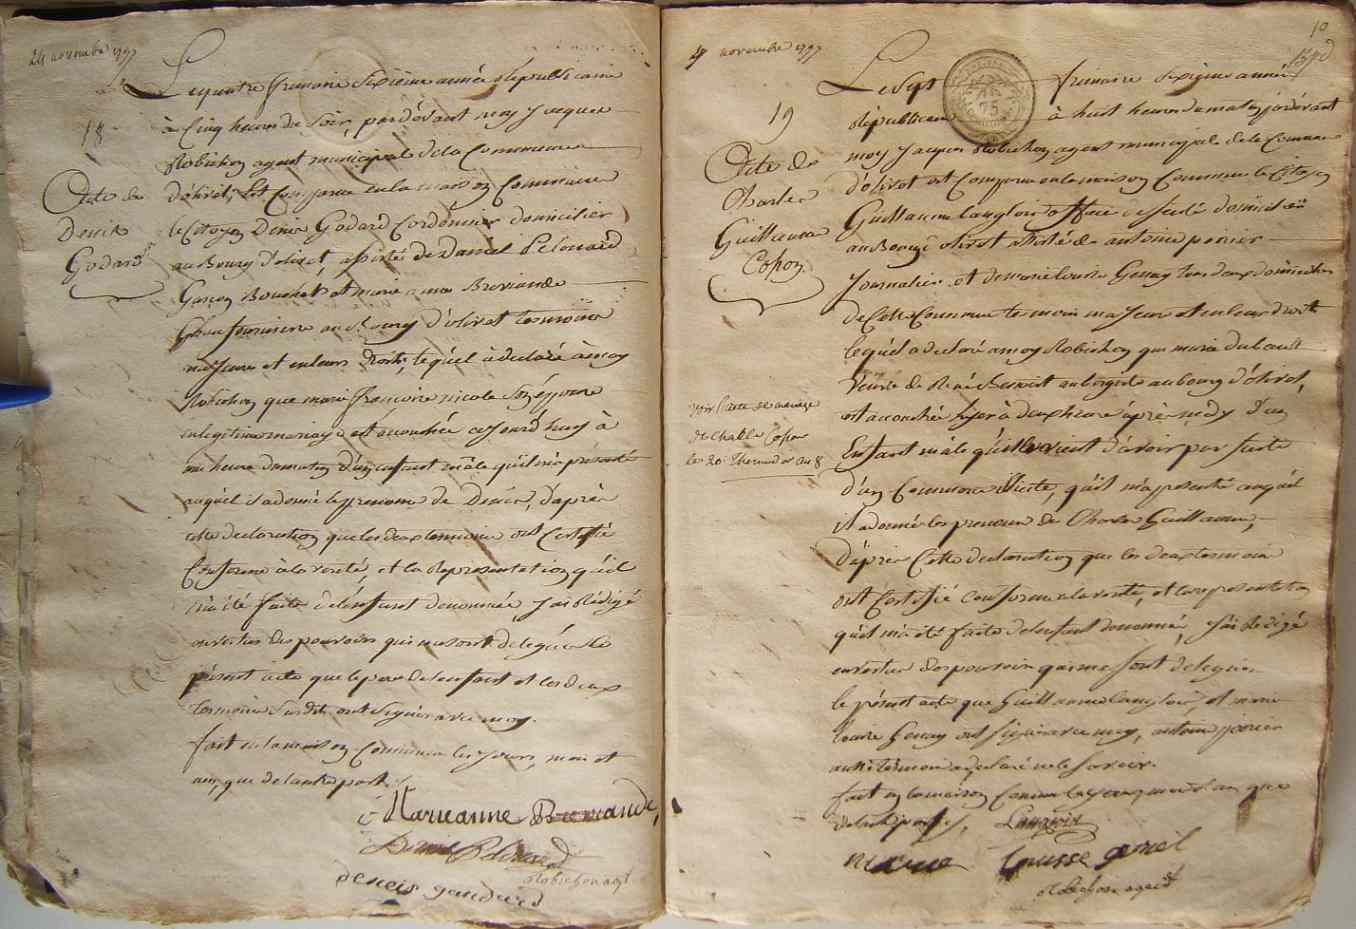 24 novembre 1797
18
Acte de
Denis
Godard
Le quatre frimaire sixième année républicaine
à cinq heures du soir, pardevant moy Jacques
Robichon agent municipal de la Commune
d'olivet, Est comparu en la maison Commune
le Citoyen Denis Godard Cordonnier domicilier
au Bourg d'olivet, assisté de Daniel Pelouard
Garçon Boucher et marie anne Breviande
au Bourg d'olivet temoins
majeurs et en leurs droits, lequel à declaré à moy
Robichon que marie françoise nicole son épouse
en legitime mariage est accouchée cejourd'huy à
une heure du matin d'un enfant mâle qu'il m'a présenté
auquel il a donné le prenom de Denis, d'après
cette declaration que les deux temoins ont Certifié
Conforme à la verité, et la representation qu'il
m'a été faite de l'enfant denommé, j'ai Rédigé
en vertu des pouvoirs qui me sont delegués le
présent acte que le pere de l'enfant et les deux
temoins susdits ont signés avec moy.
fait en la maison Commune les jours, mois et
an, que de l'autre part.
Marieanne Breviande
Daniel Pelouard
Robichon agt
deneis gaudard
10
novembre 1797
19
Acte de
Charles
Guillaume
Copon
voir l'acte de mariage
de Charles Copon
le 20 Thermidor an 8
Le Sept frimaire sixieme année
républicaine à huit heures du matin, pardevant
moy Jacques Robichon agent municipal de la Commune
d'olivet est comparu en la maison Commune le Citoyen
Guillaume langlois officier de santé domicilié
au Bourg d'olivet assisté de antoine poirier
Journalier et de marie louise Genay tous deux domiciliés
de Cette Commune temoins majeurs et en leurs droits
lequel a declaré a moy Robichon que marie
veuve de René Benoist au bourg d'olivet,
est accouchée hyer à deux heures après midy d'un
Enfant mâle qu'elle vient d'avoir par suite
d'un Commerce illicite, qu'il m'a presenté auquel
il a donné les prenoms de Charles Guillaume,
d'après Cette declaration que les deux temoins
ont Certifié conforme a la verité, et la representation
qu'il m'a été faite de l'enfant denommé, j'ai Redigé
en vertu des pouvoirs qui me sont delegués
le présent acte que Guillaume langlois, et marie
louise Genay ont signés avec moy, antoine poirier
autre temoin a declaré ne le savoir.
fait en la maison Commune les jours, mois et an que
de l'autre part. Langlois
marie Louisse genel
Robichon agent